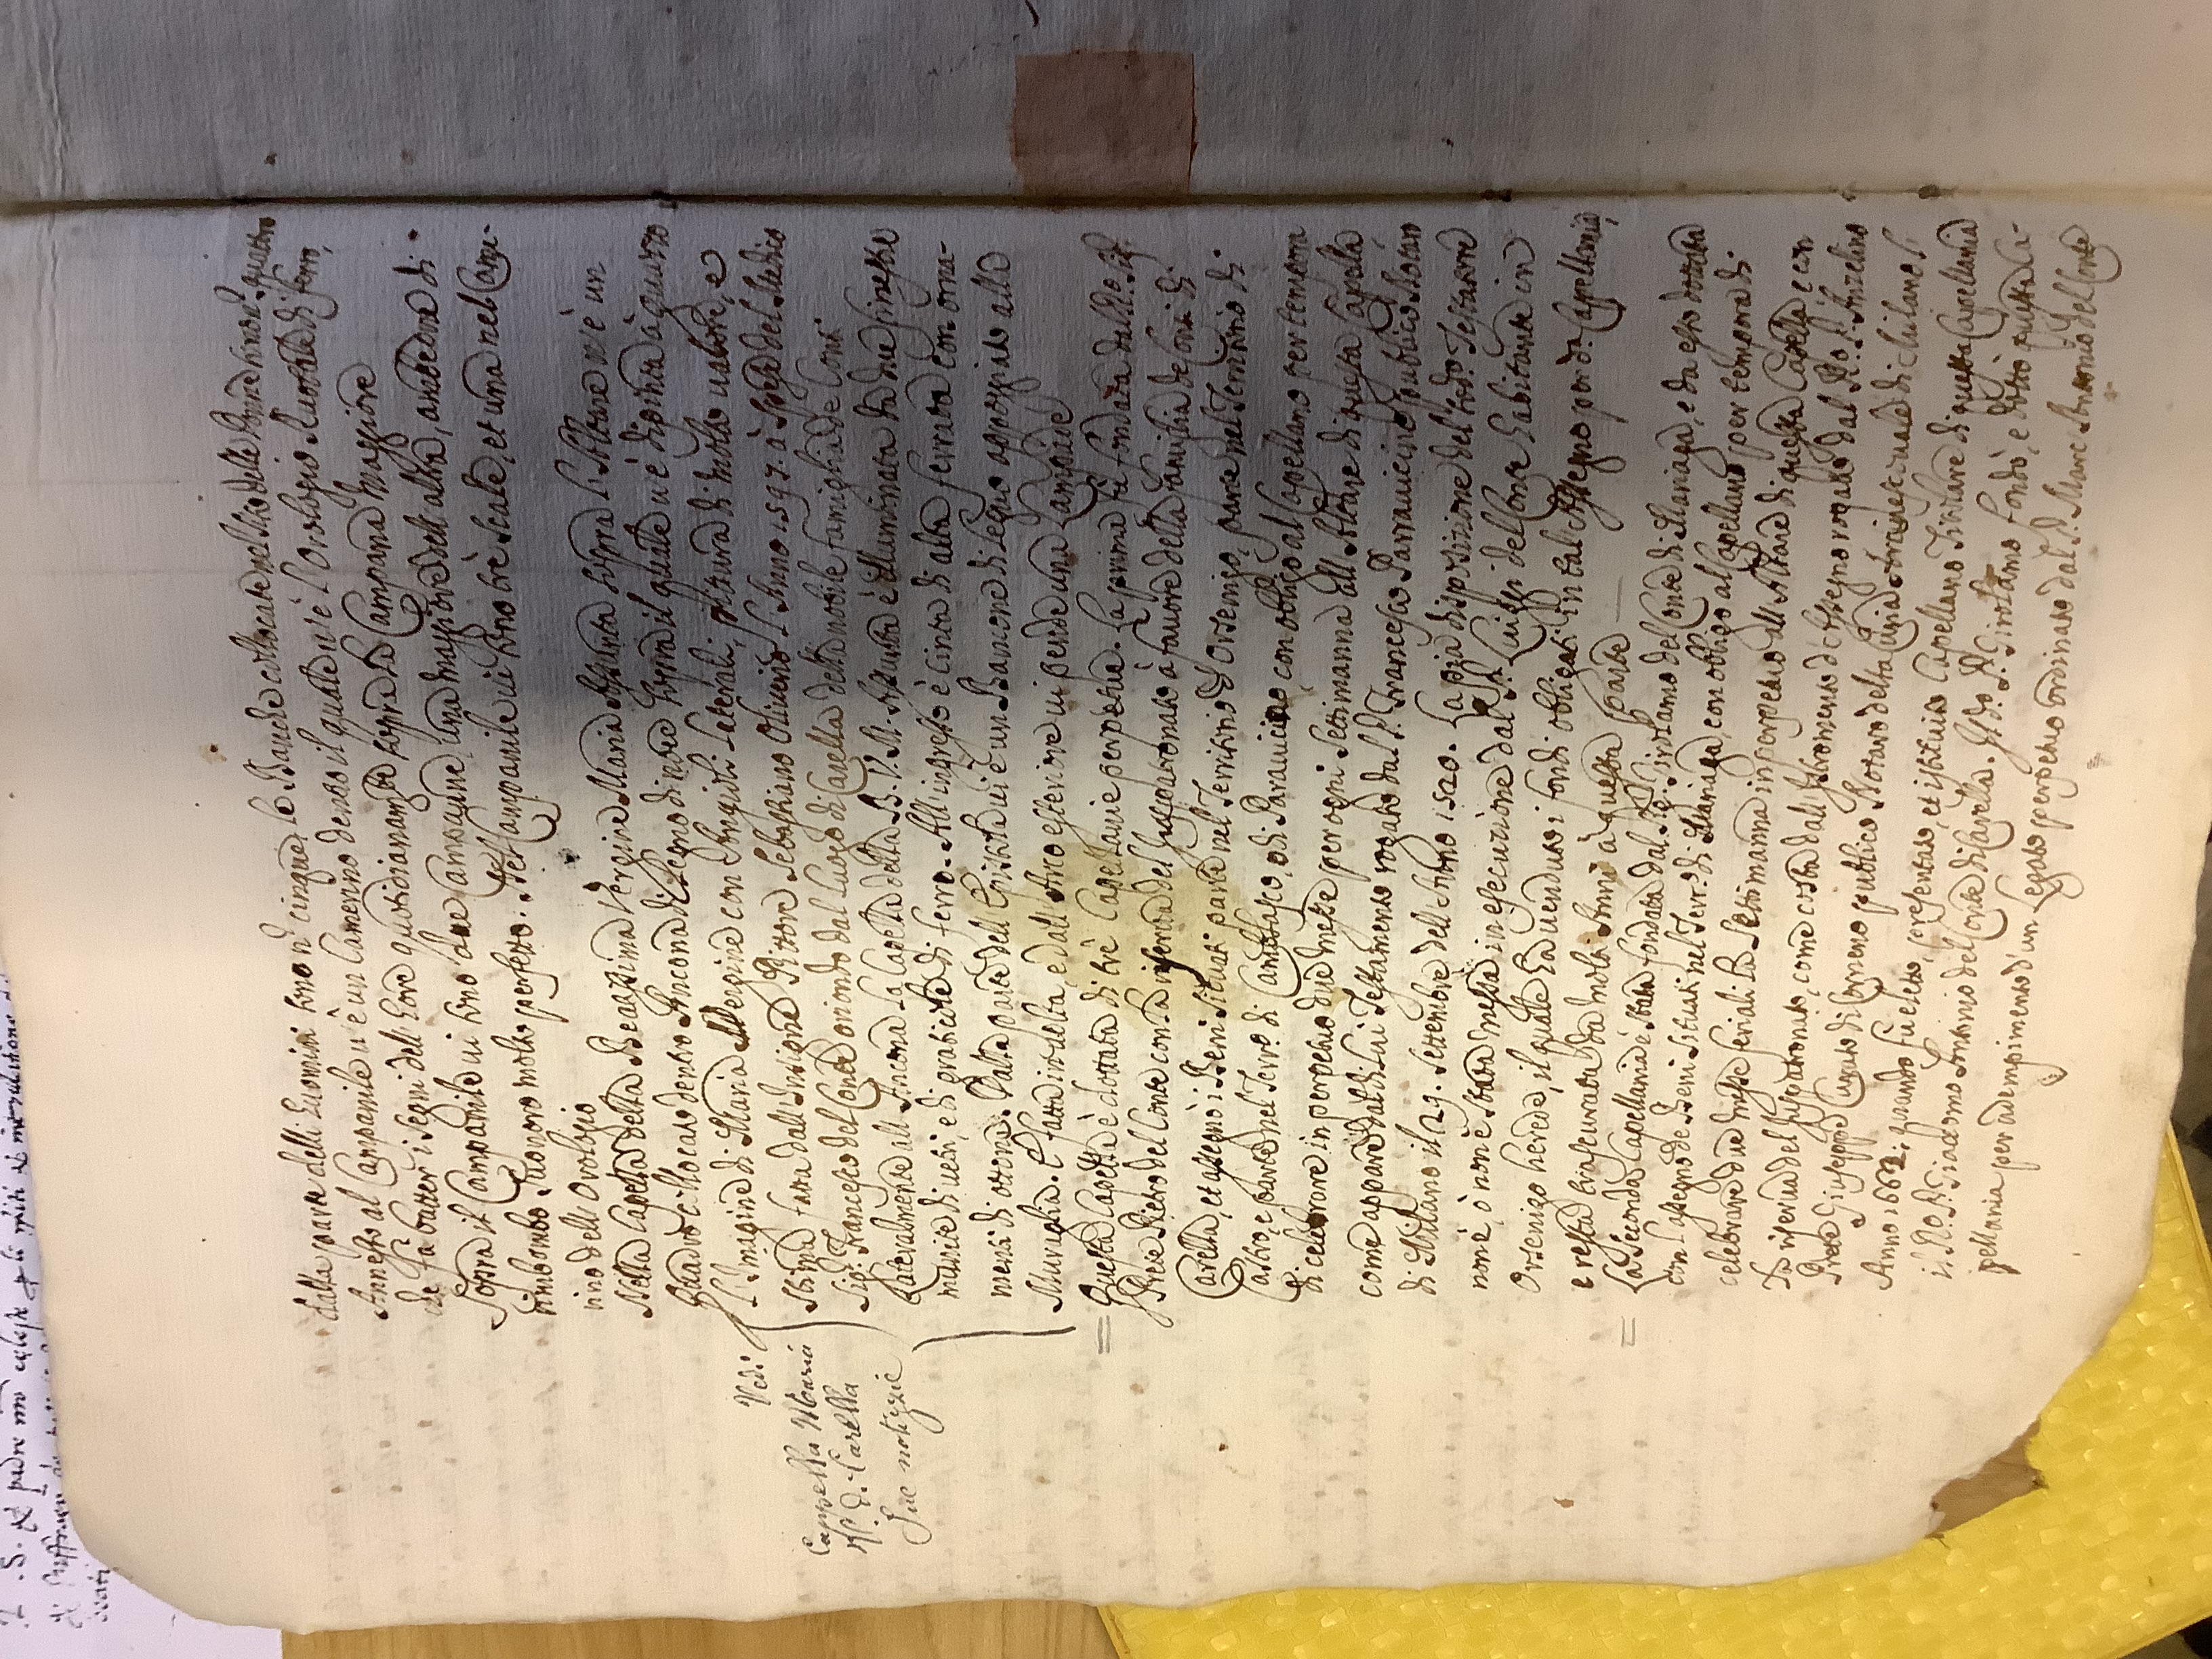 dalla parte delli Huomini sono nº cinque, le Bande collocate nel sito delle Donne sono nº quattro
Annesso al Campanile u'è un Camerino dentro il quale u'è l'Orologio Ruotato di ferro,
che fà batter i segni dell'hore quotidianamte sopra la Campana Maggiore
Sopra il Campanile ui sono due Campane, una maggiore dell'altra, ambedue di
rimbombo Suonoro molto perfetto. Nel Campanile ui sono trè Scale, et una nel Came-
rino dell'Orologio
Nella Capella della Beatissima Vergine Maria Assunta sopra l'Altare u'è un
Quadro collocato dentro Ancona di Legno di noce sopra il quale u'è dipinta à guazzo
L'Imagine di Maria Vergine con Angioli Laterali, pittura di molto ualore, e
stima fatta dall'Insigne Pittore Sebastiano Oliuerio L'Anno 1597. à Spese del Medico
Sig. Francesco del Conte oriondo dal Luogo di Carella della nobile famiglia de Conti
Lateralmente all'Ancona La Capella della B. V. M. Assunta è illuminata da due finestre
munite di uetri, e di graticole di ferro. All'ingresso è cinta di alta ferrata con orna-
menti di ottone. Dalla parte dell'Epistola ui è un Bancone di Legno appoggiato alla
Muraglia. È fatta in uolta, e dall'Arco esteriore ui pende una Lampade
Questa Capella è dottata di trè Capellanie perpetue. La prima fù fondata dall
Prete Pietro del Conte con la riserua del Juspatronato à fauore della famiglia de Conti di
Carella, et assegnò i Beni Situati parte nel Territorio d'Orsenigo, parte nel Territorio di
Caslro, e parte nel Terr. di Cambiasco, o di Parauicino, con obligo al Capellano per tempora
di celebrare in perpetuo due messe per ogni Settimanna all'Altare di questa Capella
come appare dal di Lui Testamento rogato dal S. Francesco Parrauicino publico Notaro
di Milano il 29. Settembre dell'Anno 1520. La pia disposizione del sod. Testatore
non è, ò non è Stata messa in esecuzione dal Luigi del Conte habitante in
Orsenigo herede, il quale ha uenduto i fondi obligati in tal Assegno per d.a Capellania,
e resta trascurata da molti Anni à questa parte
La Seconda Capellania è Stata fondata dal Girolamo del Conte di Mariaga, e da esso dottata
con l'assegno de Beni Situati nel Terr. di Mariaga, con obbligo al Capellano per tempora di
celebrare due messe feriali La Settimanna in perpetuo all'Altare di questa Capella, e con
La riserua del Juspatronato, come costa dall'Istromento d'Assegno rogato dal Anzelino
Prete Giuseppe Curato di Corneno publico Notaro della Curia Arciuescouale di Milano l'
Anno 1662: quando fù eletto, presentato, et istituito Capellano Titolare di questa Capellania
il Giacomo Antonio del Conte di Carella. Girolamo fondò, e dottò questa Ca-
pellania per adempimento d'un Legato perpetuo ordinato dal S. Marc'Antonio del Conte
Vedi
Cappella Maria
V. D. Carella
Sue notizie